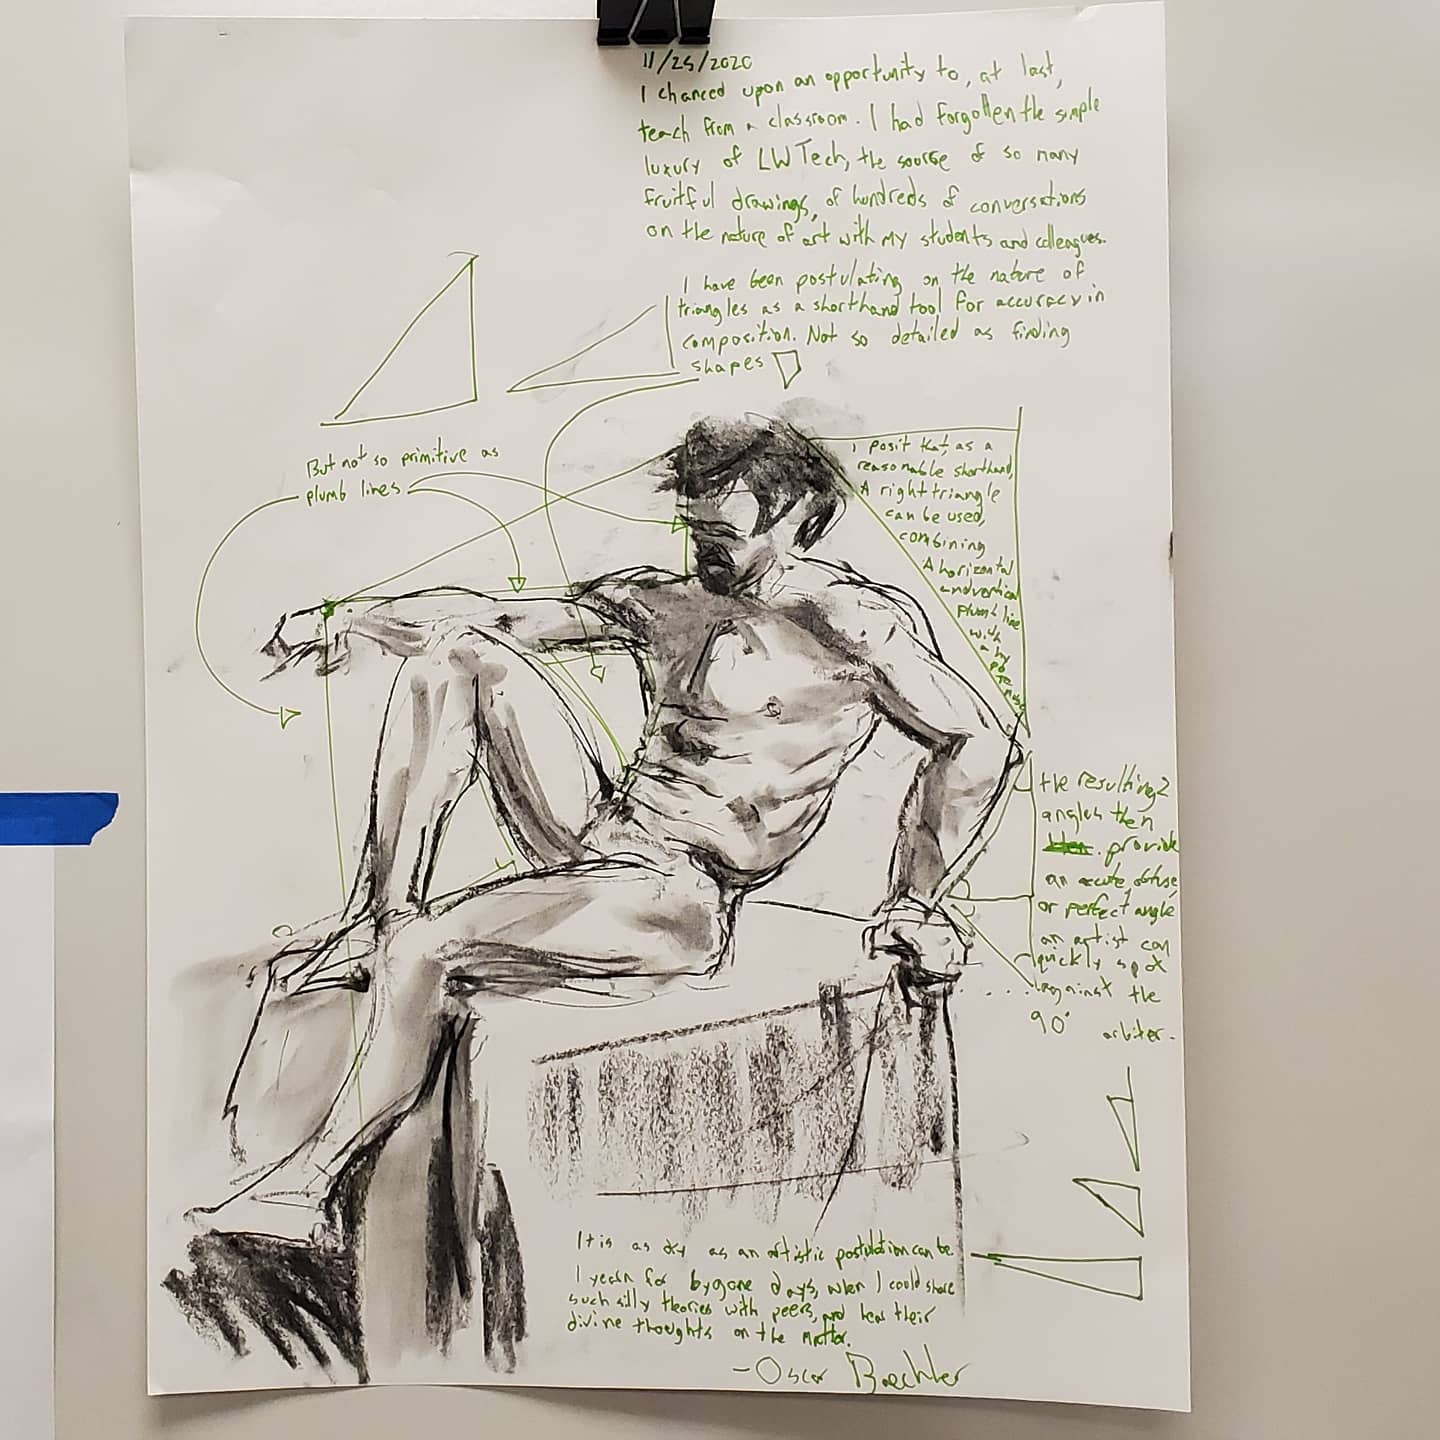 11/25/2020
I chanced upon an opportunity to, at last,
teach from a classroom. I had forgotten the simple
luxury of LW Tech, the source of so many
fruitful drawings, of hundreds of conversations
on the nature of art with my students and colleagues.
I have been postulating on the nature of
triangles as a shorthand tool for accuracy in
composition. Not so detailed as finding
shapes
But not so primitive as
plumb lines
I posit that, as a
reasonable shorthand,
A right triangle
can be used,
combining
A horizontal
and vertical
plumb line
with
a hy
po
te
nuse
the resulting 2
angles then
provide
an acute, obtuse,
or perfect angle
an artist can
quickly spot
against the
90°
arbiter.
It is as dry as an artistic postulation can be
I yearn for bygone days, when I could share
such silly theories with peers, and hear their
divine thoughts on the matter.
- Oscar Baechler